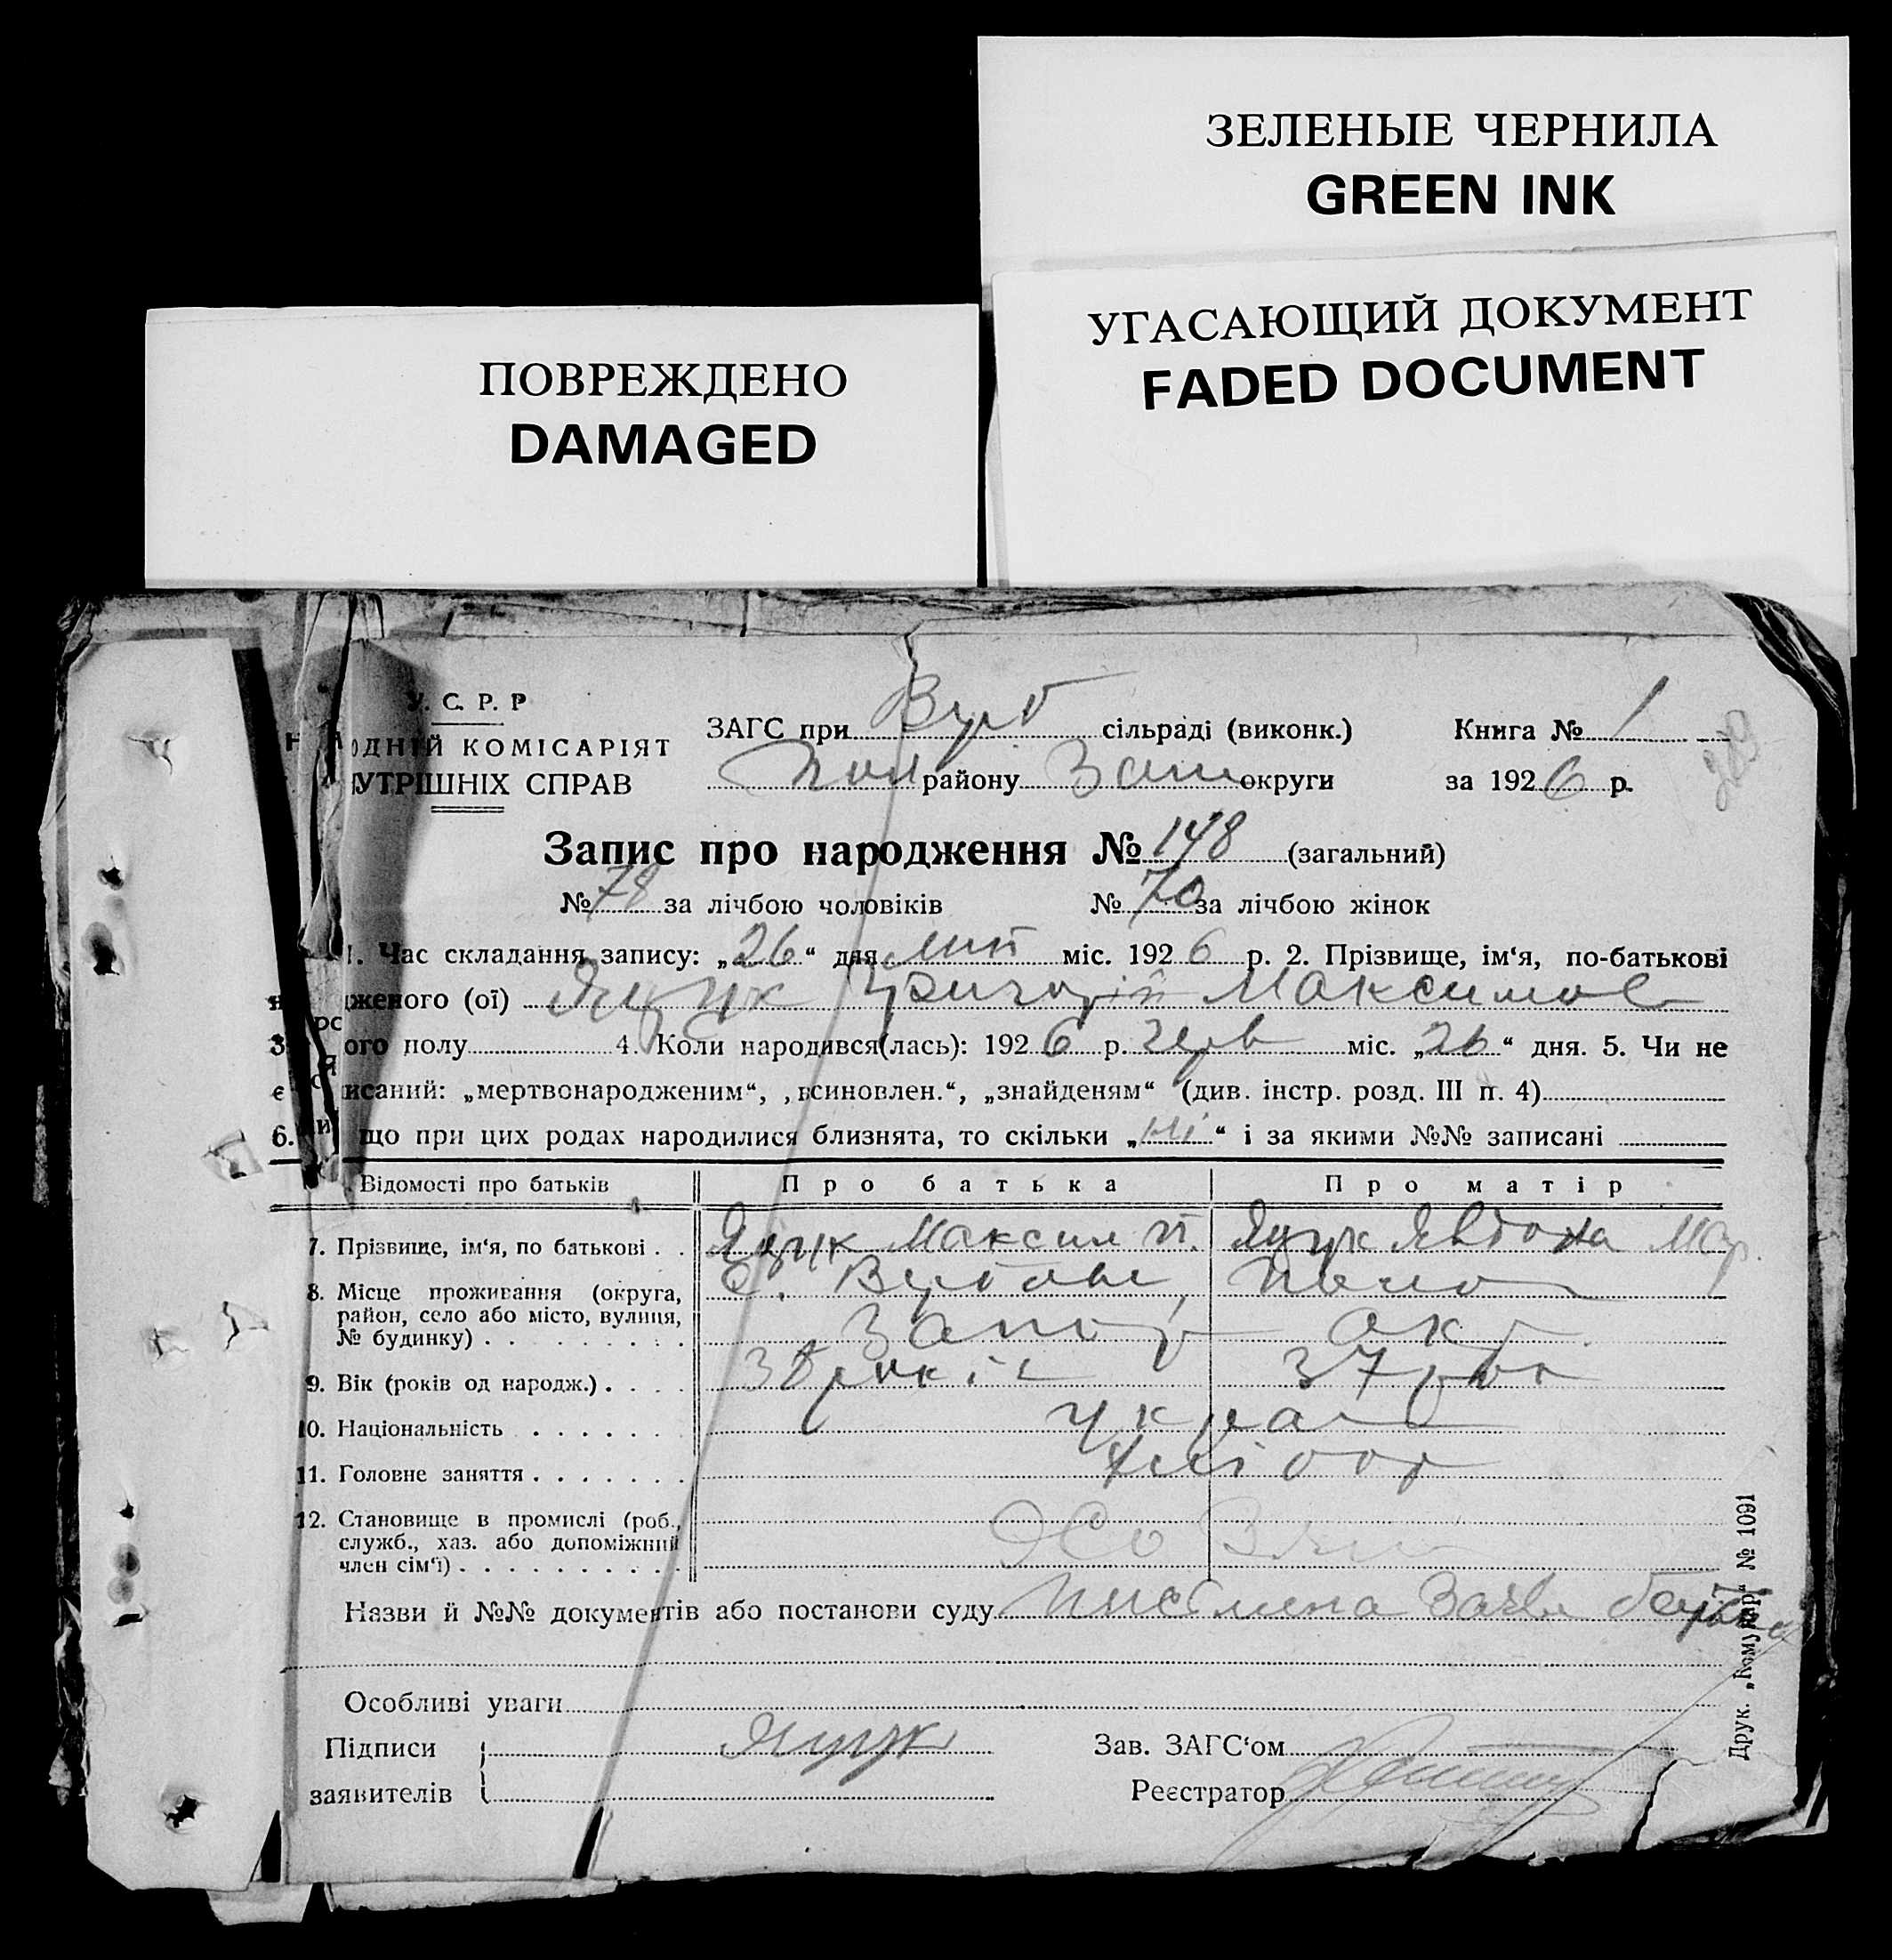 ЗЕЛЕНЫЕ ЧЕРНИЛА
GREEN INK
УГАСАЮЩИЙ ДОКУМЕНТ
FADED DOCUMENT
ПОВРЕЖДЕНО
DAMAGED
У. С. Р. Р
ОДНІЙ КОМІСАРІЯТ
УТРІШНІХ СПРАВ
ЗАГС при Верб сільраді (виконк.) Книга № 1
Пол району Зап округи за 1926 р.
Запис про народження № 148 (загальний)
№ 78 за лічбою чоловіків № 70 за лічбою жінок
1. Час складання запису: „26“ дня лип міс. 1926 р. 2. Прізвище, ім‘я, по-батькові
дженого (ої) Яцук Григорій Максимов
3. ого полу 4. Коли народився(лась): 1926 р. черв міс. „26“ дня. 5. Чи не
исаний: „мертвонародженим“, „всиновлен.“, „знайденям“ (див. інстр. розд. III п. 4)
6. що при цих родах народилися близнята, то скільки „ні“ і за якими №№ записані
Відомості про батьків Про батька Про матір
7. Прізвище, ім‘я, по батькові Яцук Максим П. Яцук Явдоха Мар.
8. Місце проживання (округа, район, село або місто, вулиця, № будинку) с. Вербове, Поло
Запор окр
9. Вік (років од народж.) 38 років 37 рок
10. Національність Укра
11. Головне заняття хлібор
12. Становище в промислі (роб., служб., хаз. або допоміжний член сім‘ї)
Назви й №№ документів або постанови суду письмена заява батька
Особливі уваги
Підписи Яцук Зав. ЗАГС‘ом
заявителів Реєстратор
Друк. „Комунар“ № 1091